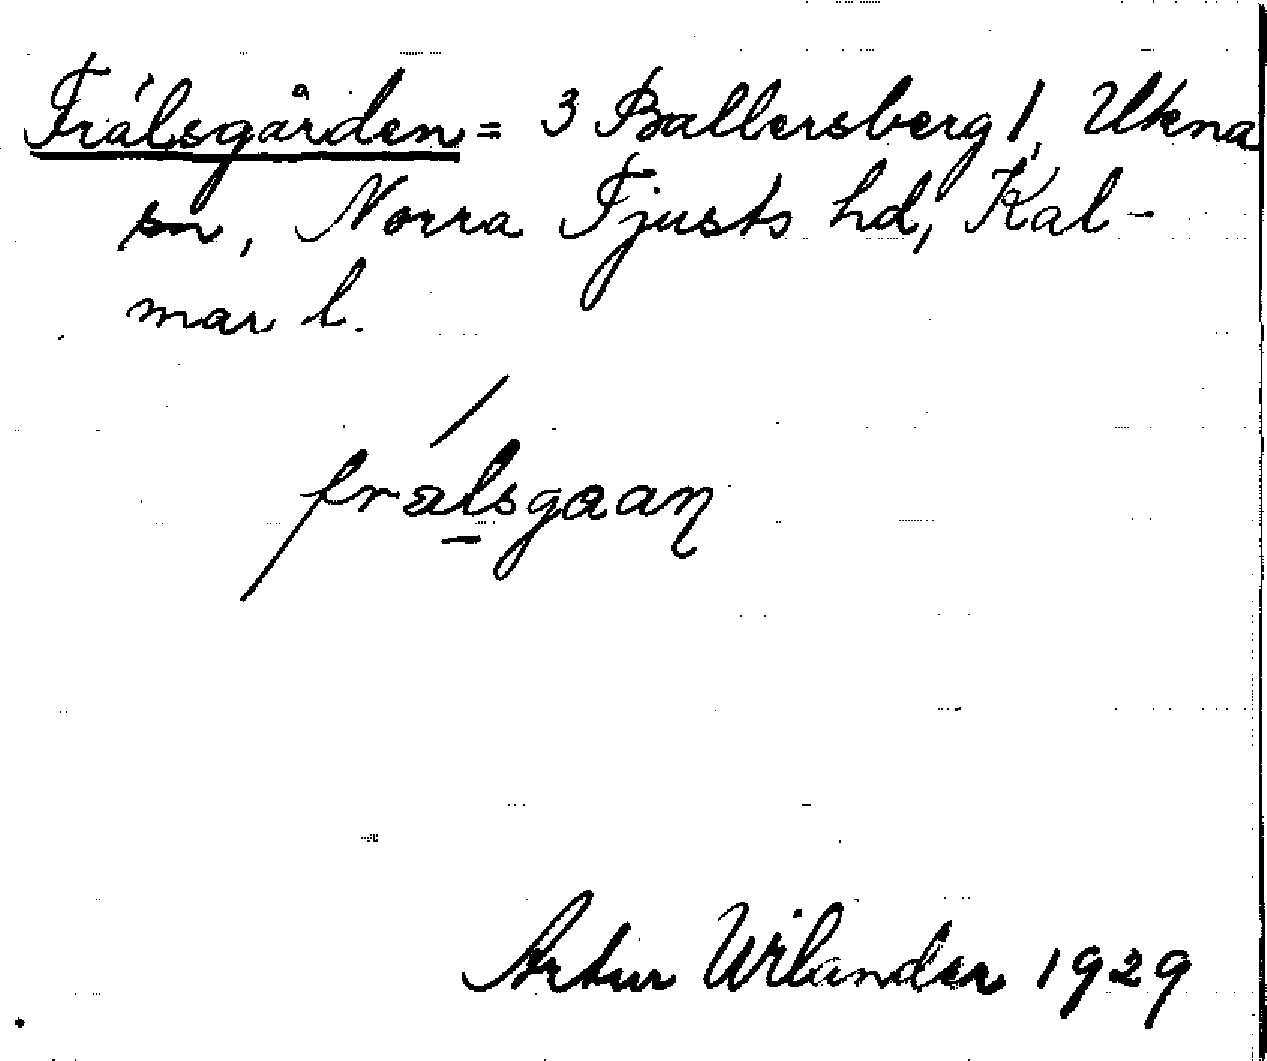 Frälsgården = 3 Ballersberg 1, Ukna
sn, Norra Tjusts hd, Kal-
mar l.
frälsgaaɳ
Artur Wilander 1929